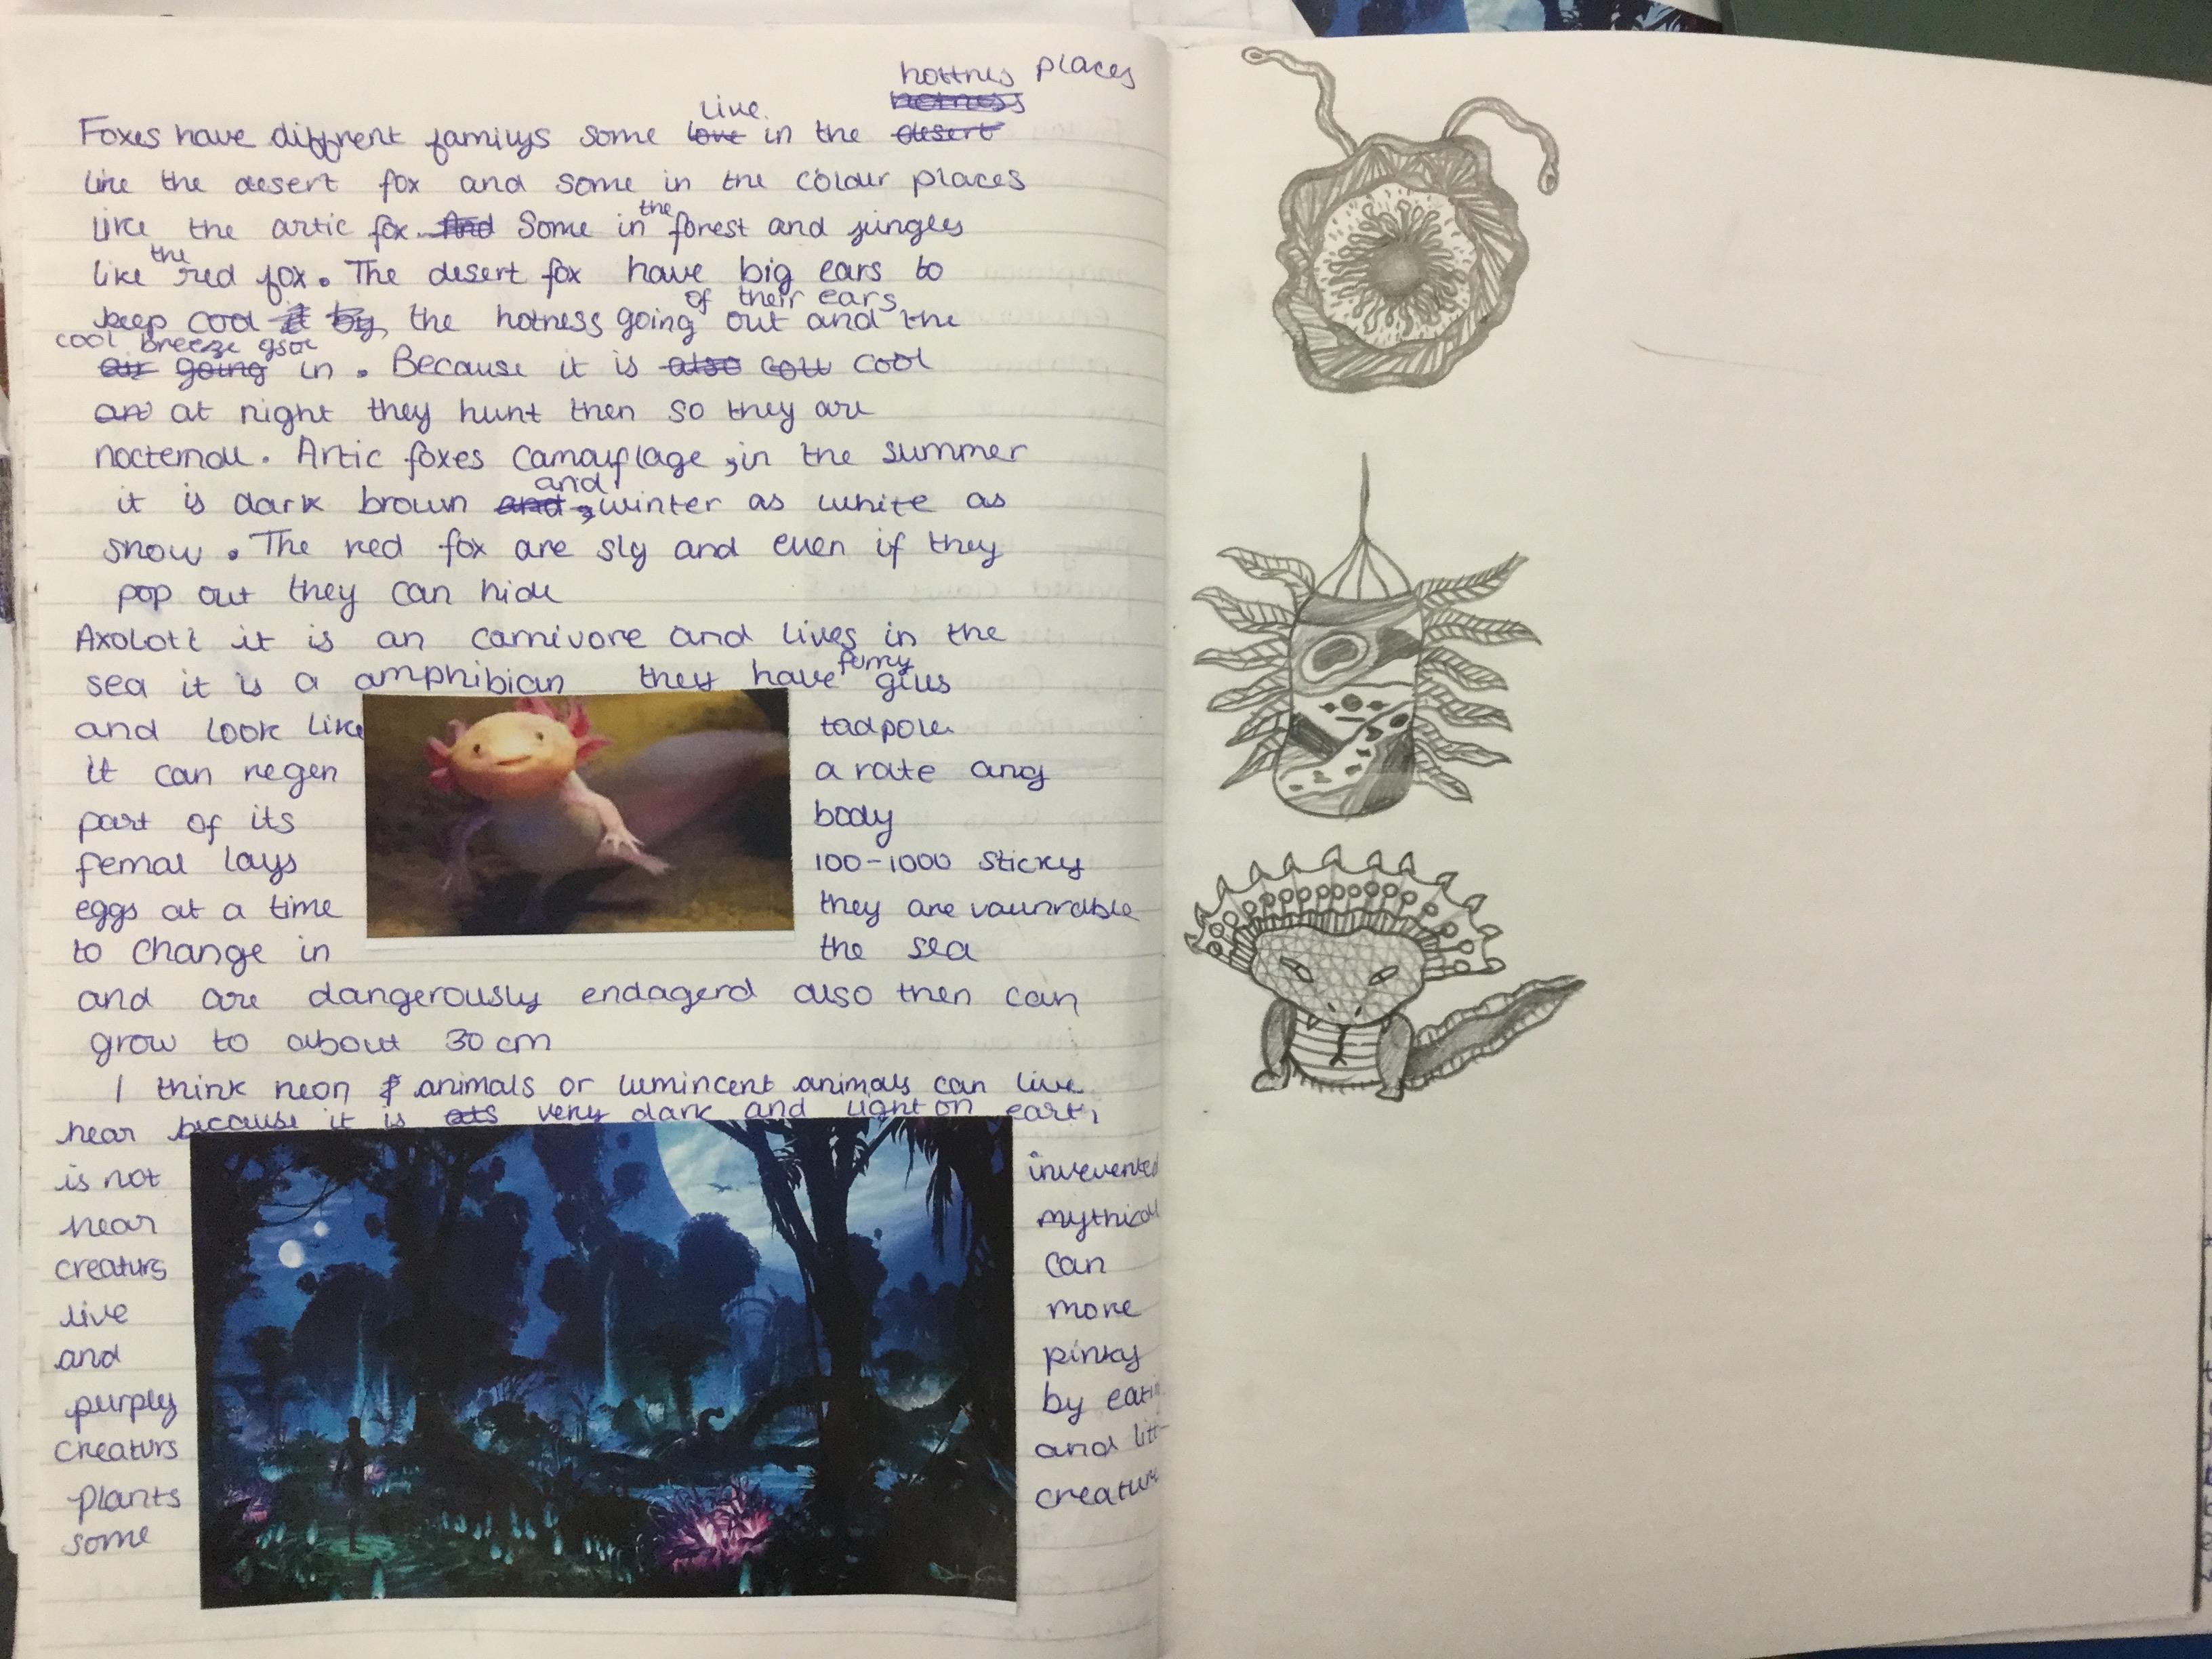 hottnes places
live hotness
Foxes have diffrent familys some love in the desert
like the desert fox and some in the colder places
the
like the artic fox And Some in forest and jungles
the
like red fox. The desert fox have big ears to
of their ears
keep cool it by the hotness going out and the
cool breeze gsoe
air going in. Because it is also cou cool
an at night they hunt then so they are
nocternall. Artic foxes camouflage ,in the summer
and
it is dark brown and , winter as white as
snow. The red fox are sly and even if they
pop out they can hide
Axolotl it is an carnivore and lives in the
funny
sea it is a amphibian they have gills
and look like tadpole
it can regen a rate any
part of its body
femal lays 100-1000 sticky
eggs at a time they are vaunrable
to change in the sea
and are dangerously endagerd also then can
grow to about 30cm
I think neon animals or lumincent animals can live
hear because it is very dark and light on earth
is not invevented
hear mythical
creaturs can
live more
and pinky
purply by eatin
creaturs and
plants creature
some